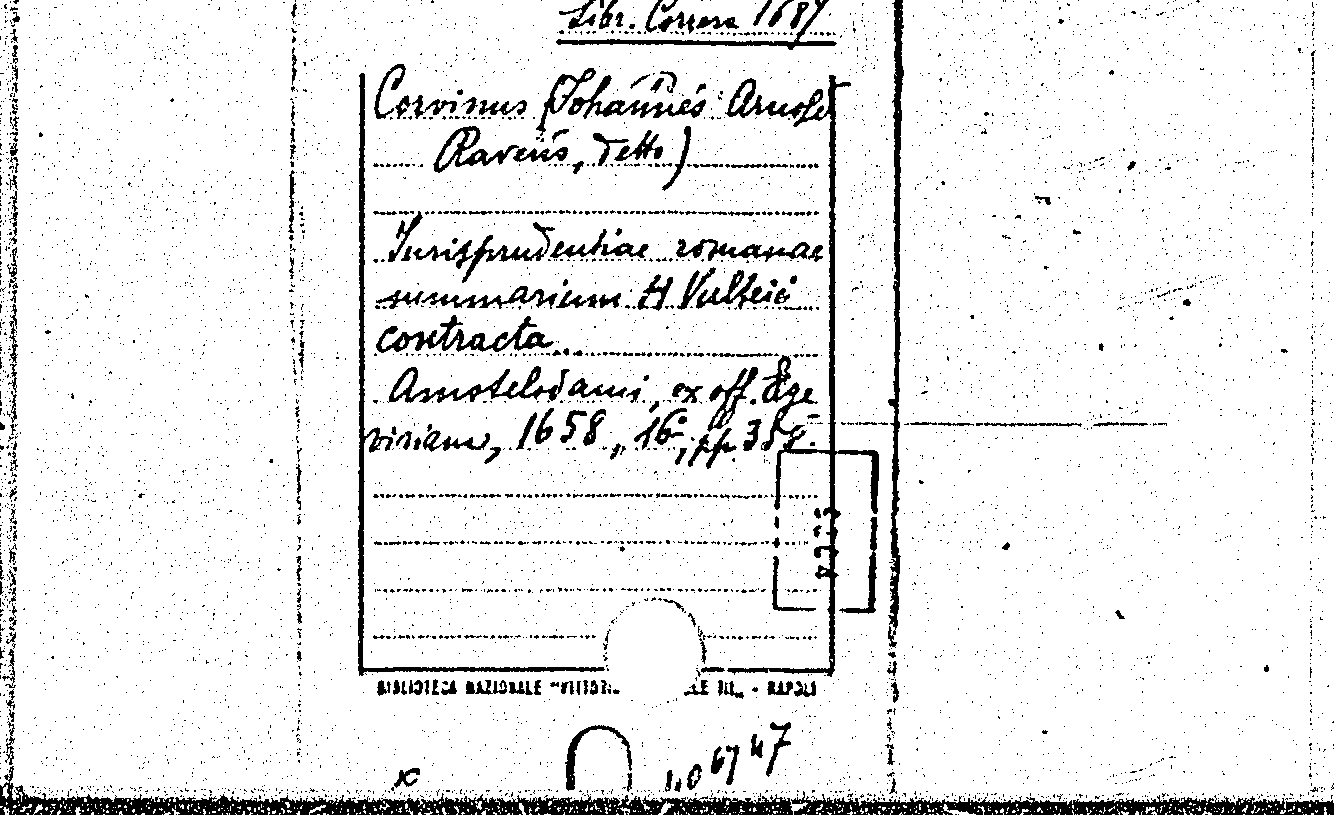 Libr. Correra 1687
Corvinus (Johannes Arnold
Ravens, detto)
Jurisprudentiae romanae
summarium H Vulteii
contracta..
Amstelodami, ex off. Elze
viriana, 1658, 16°, pp. 358.
BIBLIOTECA NAZIONALE "VITTORIO LE III„ - NAPOLI
6747